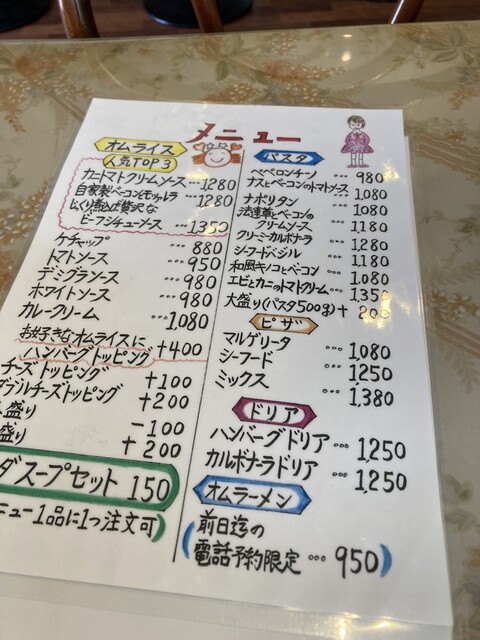 メニュー
オムライス
人気TOP3
カニトマトクリームソース …1280
自家製ベーコンとモッツァレラ …1280
じっくり煮込んだ贅沢な
ビーフシチューソース …1350
ケチャップ … 880
トマトソース … 950
デミグランソース … 980
ホワイトソース … 980
カレークリーム …1,080
お好きなオムライスに、
ハンバーグトッピング +400
チーズトッピング +100
ダブルチーズトッピング +200
盛り －100
盛り +200
ダスープセット 150
ニュー1品に1つ注文可)
パスタ
ペペロンチーノ … 980
ナスとベーコンのトマトソース … 1,080
ナポリタン … 1,080
法蓮草とベーコンの
クリームソース … 1,180
クリーミーカルボナーラ … 1,280
シーフードバジル … 1,180
和風キノコとベーコン … 1,080
エビとカニのトマトクリーム … 1,350
大盛り(パスタ500g) + 200
ピザ
マルゲリータ … 1,080
シーフード … 1,250
ミックス … 1,380
ドリア
ハンバーグドリア … 1,250
カルボナーラドリア … 1,250
オムラーメン
(前日迄の
電話予約限定 … 950)